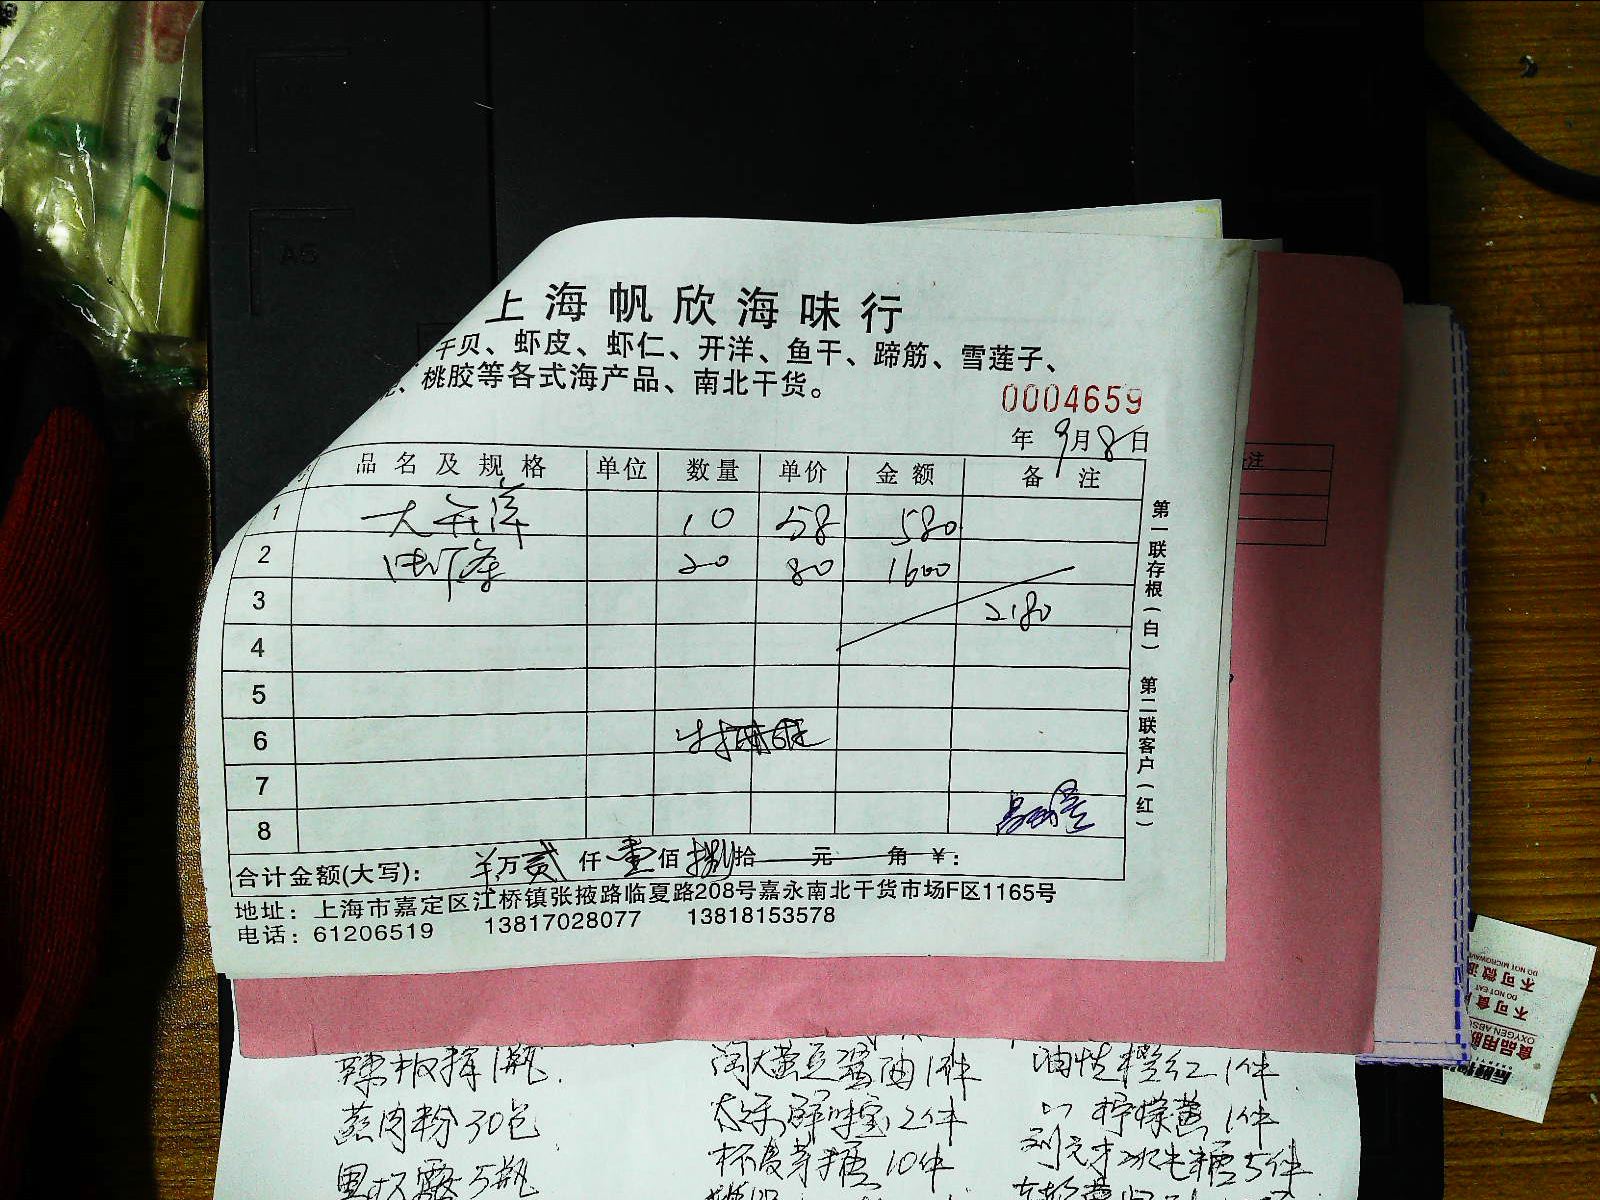 上海帆欣海味行
干贝、虾皮、虾仁、开洋、鱼干、蹄筋、雪莲子、
桃胶等各式海产品、南北干货。
0004659
年 9月8日
品名及规格 单位 数量 单价 金额 备注
1 大开洋 10 58 580
2 20 80 1600
3 2180
4
5
6
7
8
合计金额(大写)： 万贰仟壹佰捌拾 元 角 ￥：
地址：上海市嘉定区江桥镇张掖路临夏路208号嘉永南北干货市场F区1165号
电话：61206519 13817028077 13818153578
第一联存根(白) 第二联客户(红)
注
A5
1瓶 淘大黄豆酱油1件 油性橙红1件
蒸肉粉30包 太太乐鲜味宝2件 柠檬黄1件
5瓶 麦芽糖10件 5件
DO NOT MICROWAVE
不可微波
DO NOT EAT
不可食用
食品用脱